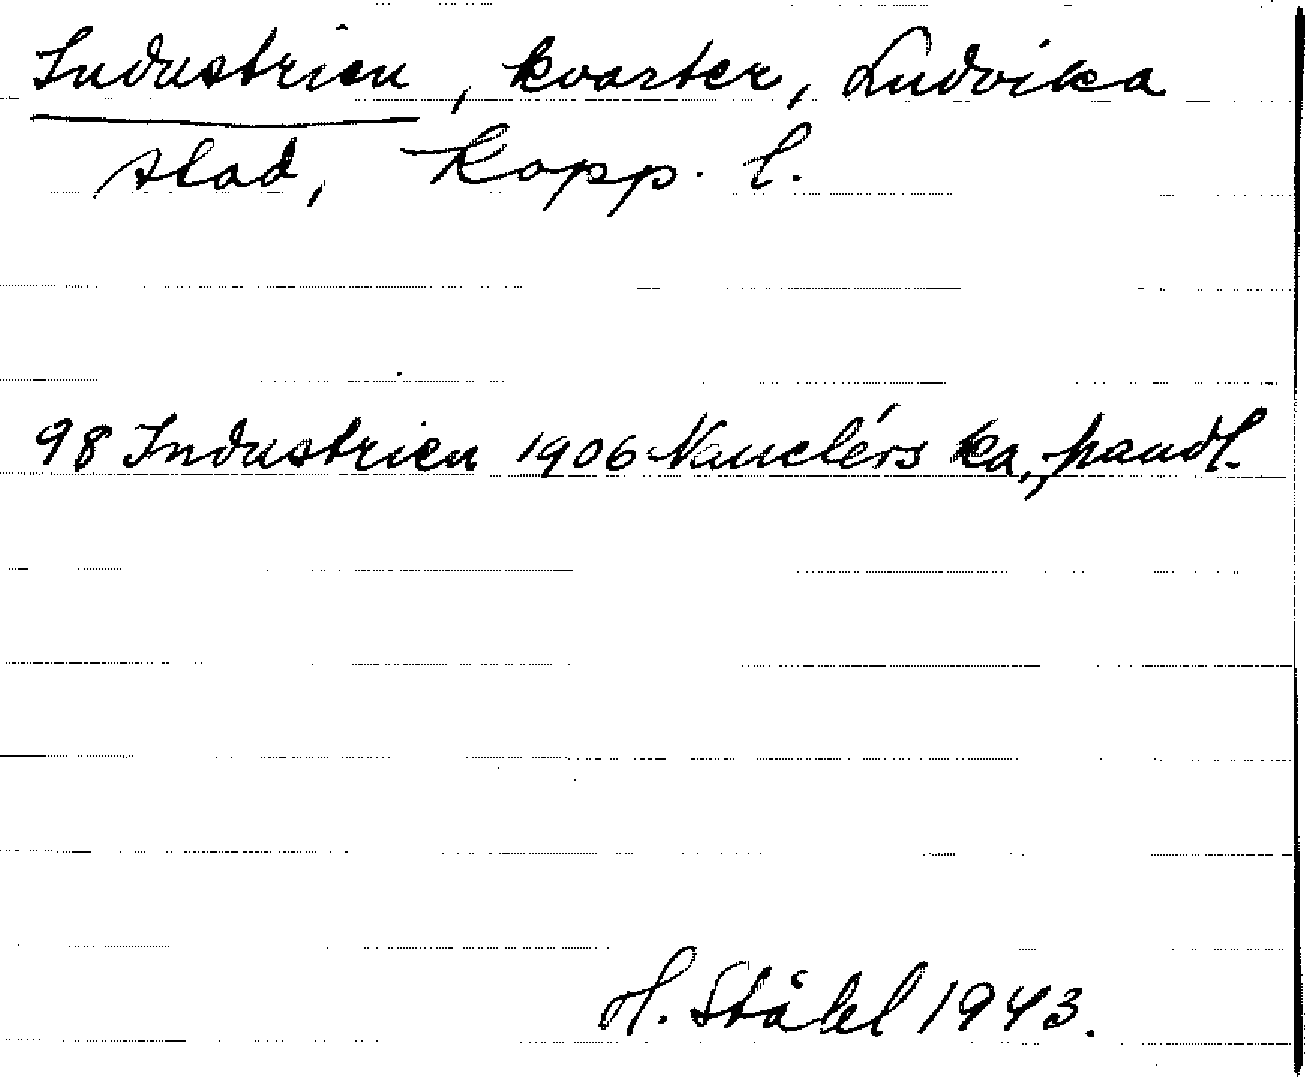 Industrien, kvarter, Ludvika
stad, Kopp. l.
98 Industrien 1906 Nauclérs ka,
H. Ståhl 1943.